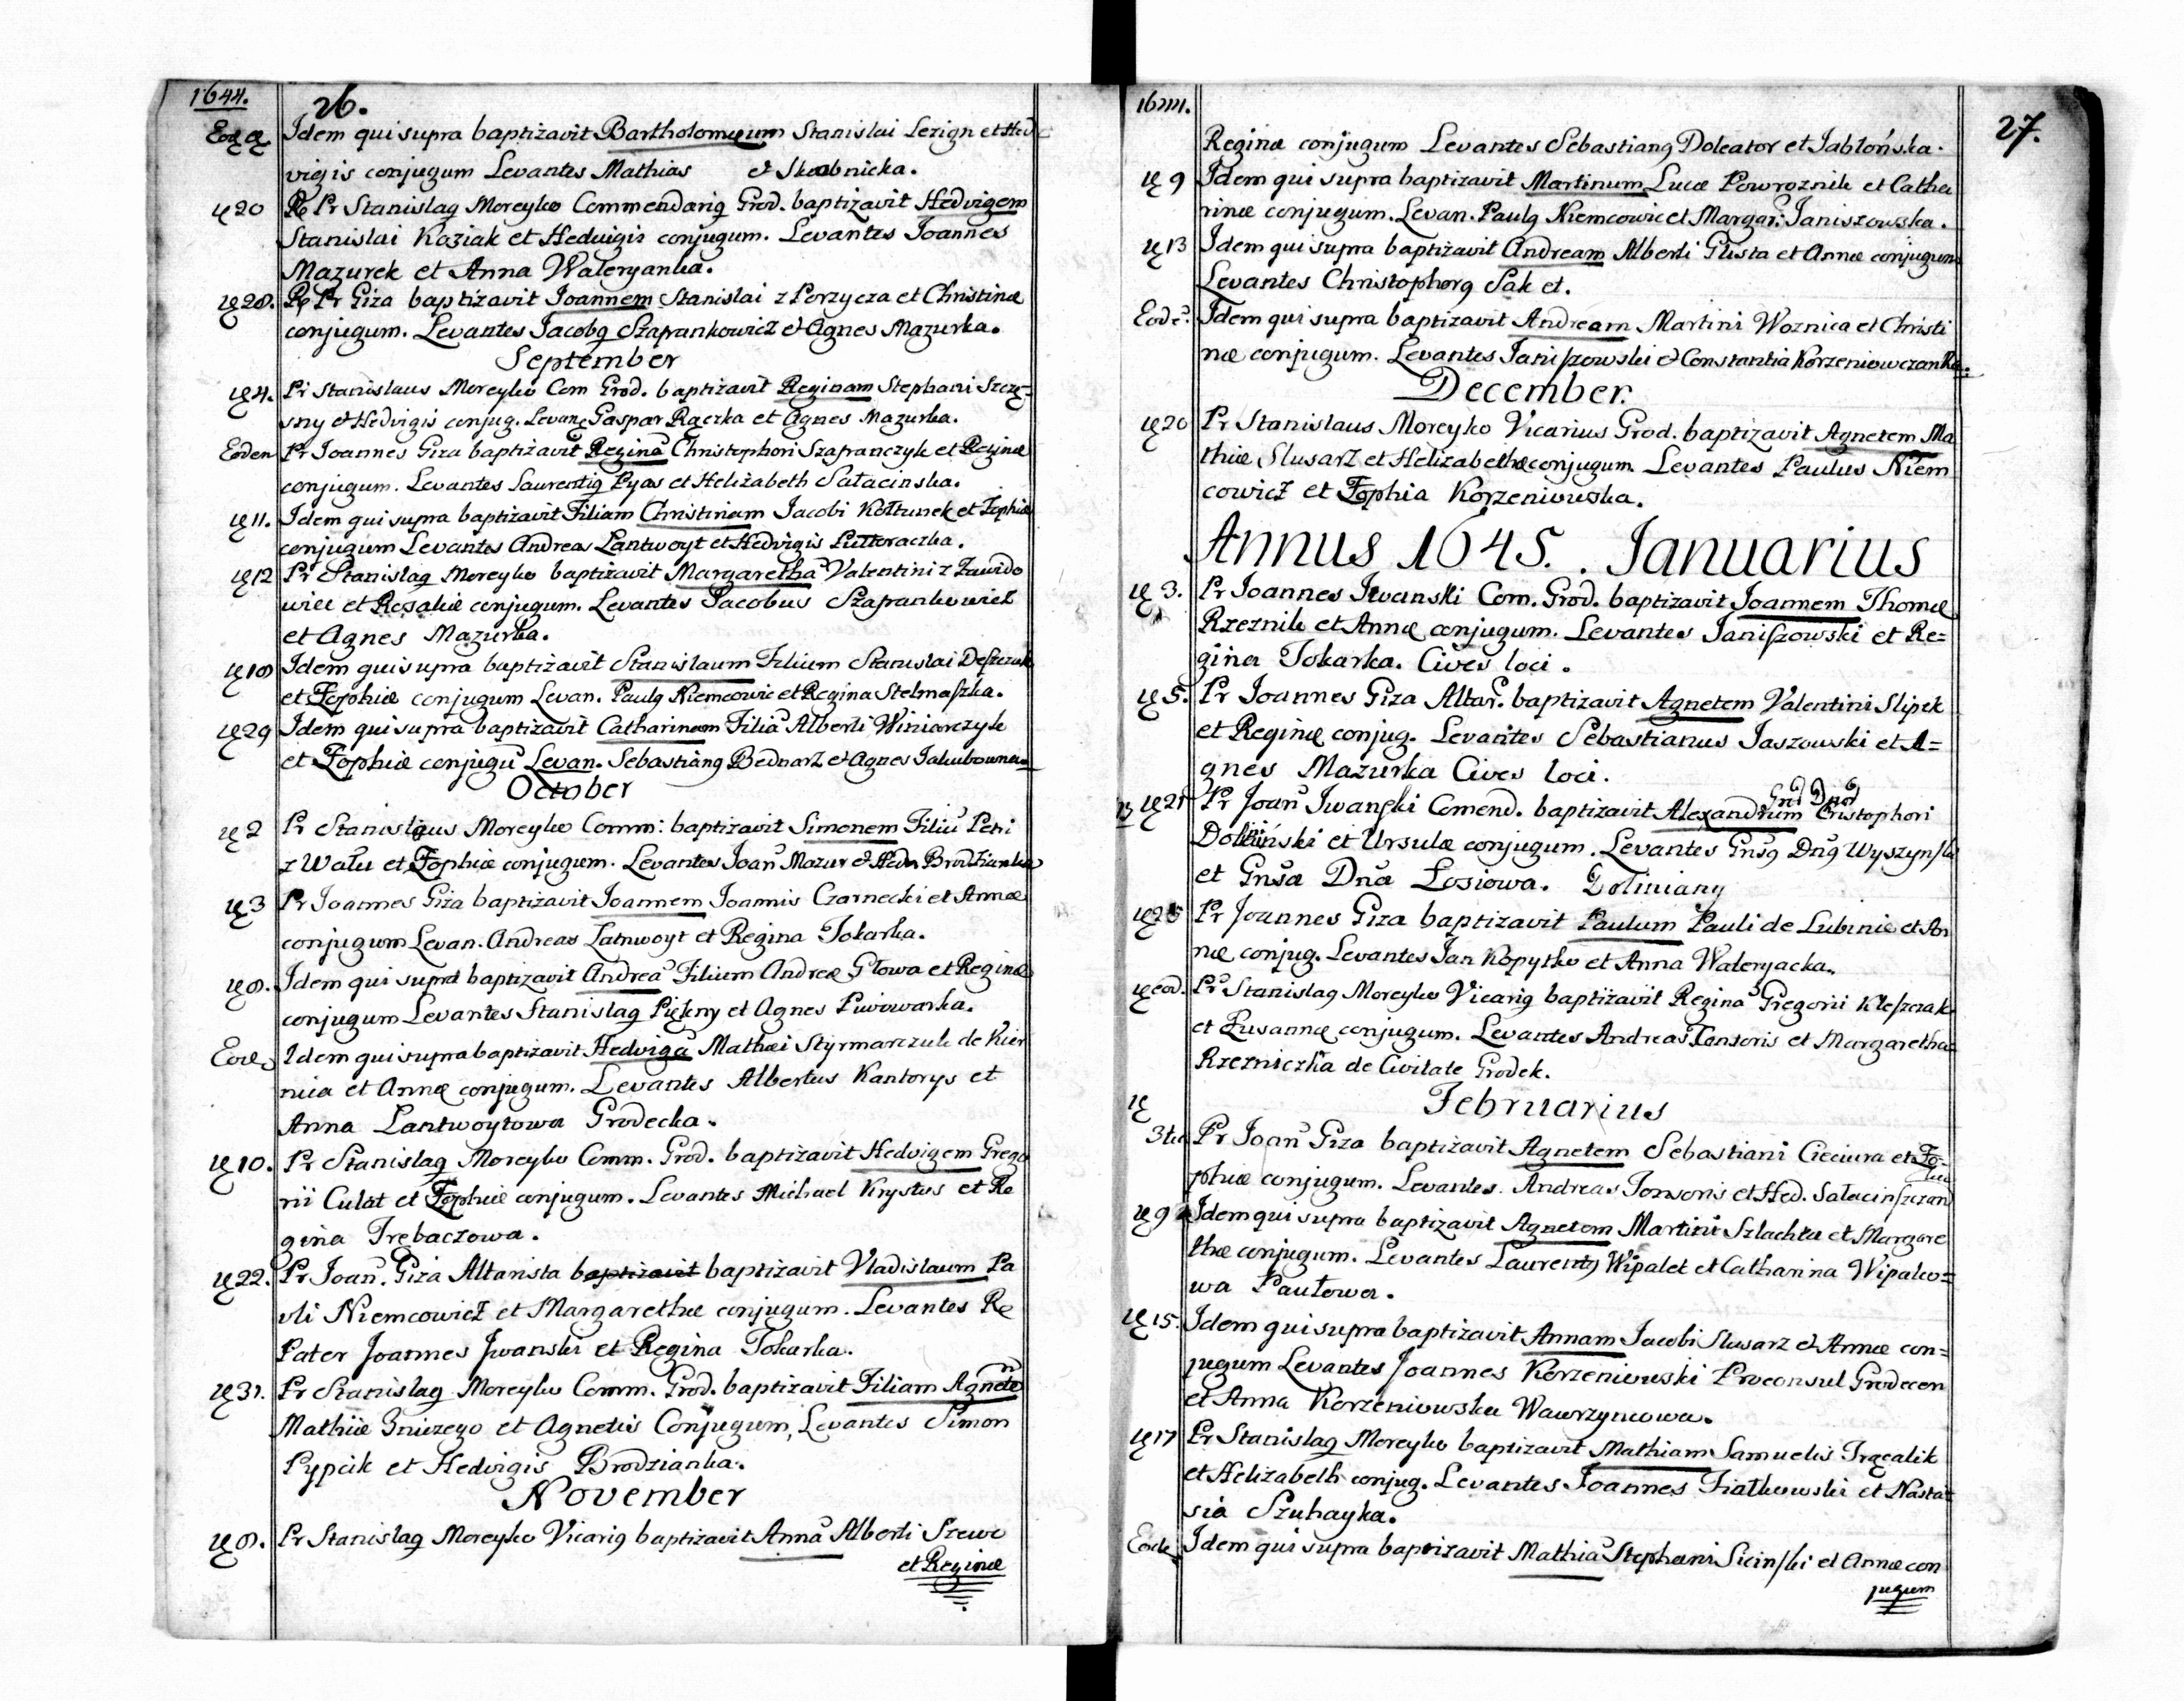 1644.
26.
Idem qui supra baptizavit Bartholomęum Stanislai Lezign et Hed
vigis conjugum Levantes Mathias et Skrobnicka.
20 Pr Stanislaq Moreyko Commendariq Grod. baptizavit Hedvigem
Stanislai Kaziak et Hedvigis conjugum. Levantes Joannes
Mazurek et Anna Waleryanka.
28. Pr Giza baptizavit Joannem Stanislai z Porzycza et Christinæ
conjugum. Levantes Jacobq Szafrankowicz et Agnes Mazurka.
September
4. Pr Stanislaus Moreyko Com Grod. baptizavit Reginam Stephani Szczę-
sny et Hedvigis conjug. Levan. Gaspar Rączka et Agnes Mazurka.
Eodem Pr Joannes Giza baptizavit Reginā Christophori Szafranczyk et Reginæ
conjugum. Levantes Laurentiq Pyas et Helizabeth Sałacinska.
11. Idem qui supra baptizavit Filiam Christinam Jacobi Kołtunek et Zophiæ
conjugum Levantes Andreas Lantwoyt et Hedvigis Puttoraczka.
12 Pr Stanislaq Moreyko baptizavit Margarethā Valentini z Zawido
wicc et Rosaliæ conjugum. Levantes Jacobus Szafrankowicz
et Agnes Mazurka.
18 Idem qui supra baptizavit Stanislaum Filium Stanislai Deszczuk
et Zophiæ conjugum Levan. Paulq Niemcowic et Regina Stelmaszka.
29 Idem qui supra baptizavit Catharinam Filiā Alberti Winiarczyk
et Zophiæ conjugū Levan. Sebastianq Bednarz et Agnes Jakubowna
October
2 Pr Stanislaus Moreyko Comm: baptizavit Simonem Filiū Petri
z Wału et Zophiæ conjugum. Levantes Joan Mazur et Hedv Brodzianka
3 Pr Joannes Giza baptizavit Joannem Joannis Czarnecki et Annæ
conjugum Levan. Andreas Latnwoyt et Regina Tokarka.
8. Idem qui supra baptizavit Andreā Filium Andreæ Głowa et Reginæ
conjugum Levantes Stanislaq Piękny et Agnes Piwowarka.
Eode Idem qui supra baptizavit Hedvigā Mathæi Styrmarczuk de Kier
nica et Annæ conjugum. Levantes Albertus Kantorys et
Anna Lantwoytowa Grodecka.
10. Pr Stanislaq Moreyko Comm. Grod. baptizavit Hedvigem Grego
rii Culat et Zophiæ conjugum. Levantes Michael Krystus et Re
gina Trębaczowa.
22. Pr Joan. Giza Altarista baptizavit baptizavit Vladislaum Pa
vli Niemcowicz et Margarethæ conjugum. Levantes Re
Pater Joannes Jwanski et Regina Tokarka.
31. Pr Stanislaq Moreyko Comm. Grod. baptizavit Filiam Agnetē
Mathiæ Gnizego et Agnetis Conjugum, Levantes Simon
Pypcik et Hedvigis Brodzianka.
November
8. Pr Stanislaq Moreyko Vicariq baptizavit Annā Alberti Szewc
et Reginæ
27.
Reginæ conjugum Levantes Sebastianq Doleator et Jabłońska.
9 Idem qui supra baptizavit Martinum Lucæ Powroznik et Catha
rinæ conjugum. Levan. Paulq Niemcowic et Margar: Janiszowska.
13 Idem qui supra baptizavit Andream Alberti Glista et Annæ conjugum
Levantes Christophorq Sak et.
Eode. Idem qui supra baptizavit Andream Martini Woznica et Christi
næ conjugum. Levantes Janiszowski et Constantia Korzeniowczanka.
December.
20 Pr Stanislaus Moreyko Vicarius Grod. baptizavit Agnetem Ma
thiæ Slusarz et Helizabethæ conjugum. Levantes Paulus Niem
cowicz et Zophia Korzeniowska.
Annus 1645. Januarius
3. Pr Joannes Jwanski Com. Grod. baptizavit Joannem Thomæ
Rzeznik et Annæ conjugum. Levantes Janiszowski et Re=
gina Tokarka. Cives loci.
5. Pr Joannes Giza Altar. baptizavit Agnetem Valentini Slipek
et Reginæ conjug. Levantes Sebastianus Jaszowski et A=
gnes Mazurka Cives loci.
21 Pr Joan Jwanski Comend. baptizavit Alexandrum Cristophori
Doliński et Ursulæ conjugum. Levantes Gnsq Dnq Wyszynski
et Gnsa Dna Losiowa. Doliniany
25 Pr Joannes Giza baptizavit Paulum Pauli de Lubinie et An
næ conjug. Levantes Jan Kopytko et Anna Waleryacka.
eod. Pr Stanislaq Moreyko Vicariq baptizavit Reginā Gregorii Kleszczak
et Zusannæ conjugum. Levantes Andreas Tonsoris et Margaretha
Rzezniczka de Civitate Grodek.
Februarius
3tia Pr Joan Giza baptizavit Agnetem Sebastiani Cieciura et Zo-
phiæ conjugum. Levantes. Andreas Tonsoris et Hed. Sałacinszczan
ka
9 Idem qui supra baptizavit Agnetem Martini Szlachta et Margare
thæ conjugum. Levantes Laurentq Wipalet et Catharina Wipalco=
wa Pautowa.
15. Idem qui supra baptizavit Annam Jacobi Slusarz et Annæ con=
jugum Levantes Joannes Korzeniowski Proconsul Grodecen
et Anna Korzeniowska Wawrzyncowa.
17 Pr Stanislaq Moreyko baptizavit Mathiam Samuelis Trącalik
et Helizabeth conjug. Levantes Joannes Fiałkowski et Nasta=
sia Szuhayka.
Eode Idem qui supra baptizavit Mathiā Stephani Sicinski et Annæ con
jugum